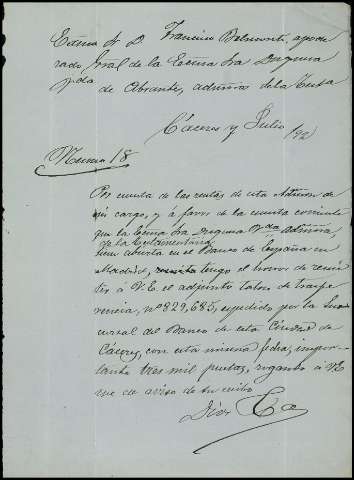 Excmo Sr D. Francisco Belmonte, apode
rado Gral de la Excma Sra Duquesa
Vda de Abrante, admora de la Testa
Cáceres y Julio /92
Número 18
Por cuenta de las rentas de esta Admon de
mi cargo, y a favor de la cuenta corriente
que la Excma Sra Duquesa Vda admora
de la Testamentaria
tiene abierta en el Banco de España en
Madrid, tengo el honor de remi
tir á V.E. el adjunto talon de trasfe
rencia, nº 829,685, espedido por la Su
cursal del Banco de esta Ciudad de
Cáceres, con esta misma fecha, impor
tante tres mil pesetas, rogando á VE
me dé aviso de su recibo
Dios &a